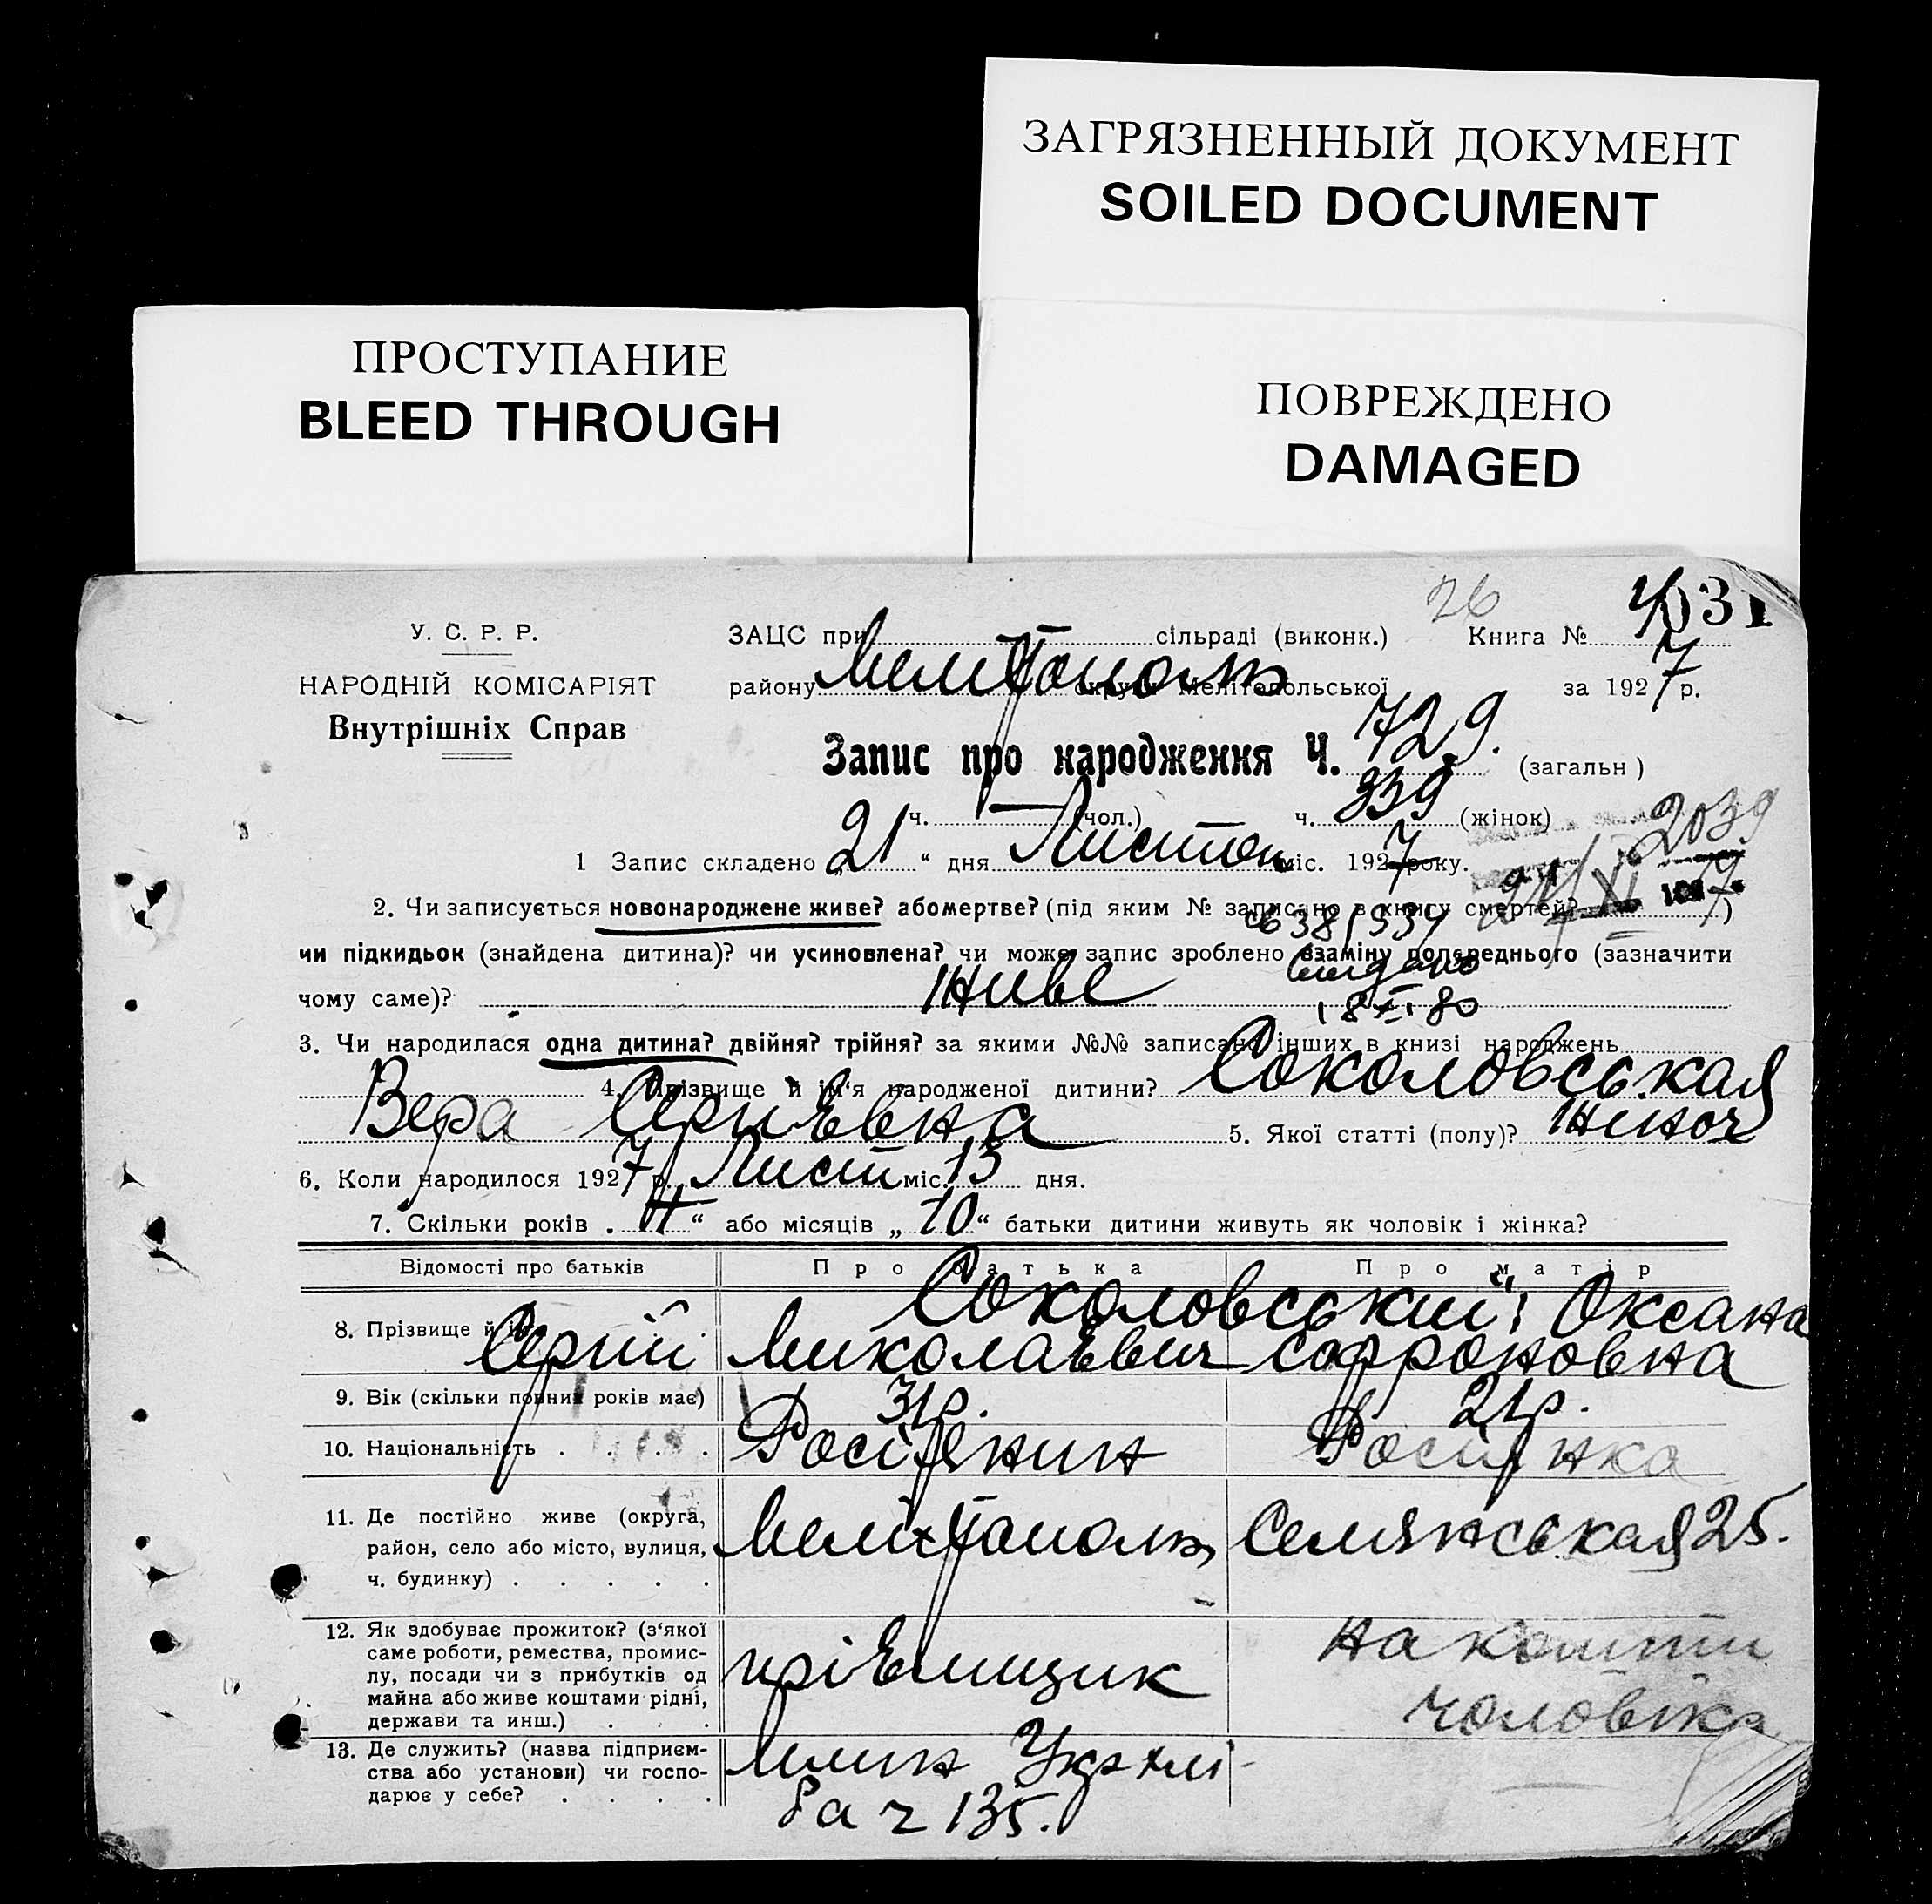 ЗАГРЯЗНЕННЫЙ ДОКУМЕНТ
SOILED DOCUMENT
ПРОСТУПАНИЕ
BLEED THROUGH
ПОВРЕЖДЕНО
DAMAGED
26
У. С. Р. Р.
НАРОДНІЙ КОМІСАРІЯТ
Внутрішніх Справ
ЗАЦС при сільраді (виконк.) Книга №
району Мелітополь округи Мелітопольської за 1927 р.
Запис про народження Ч. 729. (загальн)
ч. — (чол.) ч. 339 (жінок)
2039
1 Запис складено „21“ дня Листоп міс. 1927 року.
2. Чи записується новонароджене живе? або мертве? (під яким № записано в книгу смертей? )
чи підкидьок (знайдена дитина)? чи усиновлена? чи може запис зроблено взаміну попереднього (зазначити
чому саме)? Живе
18 XI 80
3. Чи народилася одна дитина? двійня? трійня? за якими №№ записані інших в книзі народжень
4. Прізвище й ім'я народженої дитини? Соколовськая
Вера Сергіевна 5. Якої статті (полу)? Жіноч
6. Коли народилося 1927 р. Лист міс. 13 дня.
7. Скільки років . „ “ або місяців „10“ батьки дитини живуть як чоловік і жінка?
Відомості про батьків Про батька Про матір
8. Прізвище й ім'я Соколовський; Оксана
Сергій Миколаєвич Софроновна
9. Вік (скільки повних років має) 31 р. 21 р.
10. Національність . . . . Росіянин Росіянка
11. Де постійно живе (округа,
район, село або місто, вулиця,
ч. будинку) . . . . .
Мелітополь, Семянськая 25.
12. Як здобуває прожиток? (з'якої
саме роботи, ремества, промис-
лу, посади чи з прибутків од
майна або живе коштами рідні,
держави та инш.) . . .
прієльщик
на кошти
чоловіка
13. Де служить? (назва підприєм-
ства або установи) чи госпо-
дарює у себе? . . . .
Млин Укрхлі-
ба ч 135.